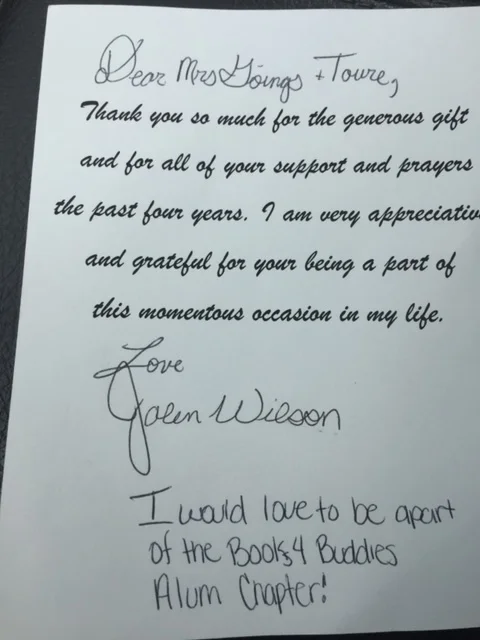 Dear Mrs Goings + Toure,
Thank you so much for the generous gift
and for all of your support and prayers
the past four years. I am very appreciativ
and grateful for your being a part of
this momentous occasion in my life.
Love
Jalen Wilson
I would love to be apart
of the Books 4 Buddies
Alum Chapter!